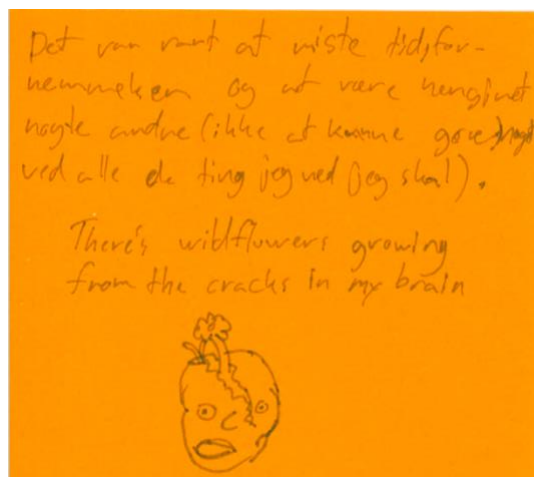 Det var rart at miste tidsfor-
nemmelsen og at være
nogle andre (ikke at kunne gøre noget
ved alle de ting jeg ved jeg skal).
There's wildflowers growing
from the cracks in my brain